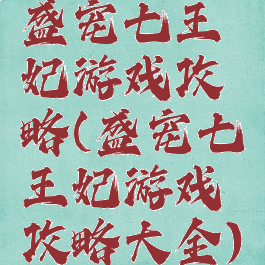 盛宠七王
妃游戏攻
略(盛宠七
王妃游戏
攻略大全)